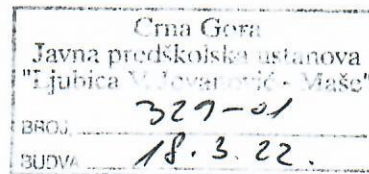 Crna Gora
Javna predškolska ustanova
"Ljubica V. Jovanović - Maše"
BROJ, 329-01
BUDVA 18.3.22.